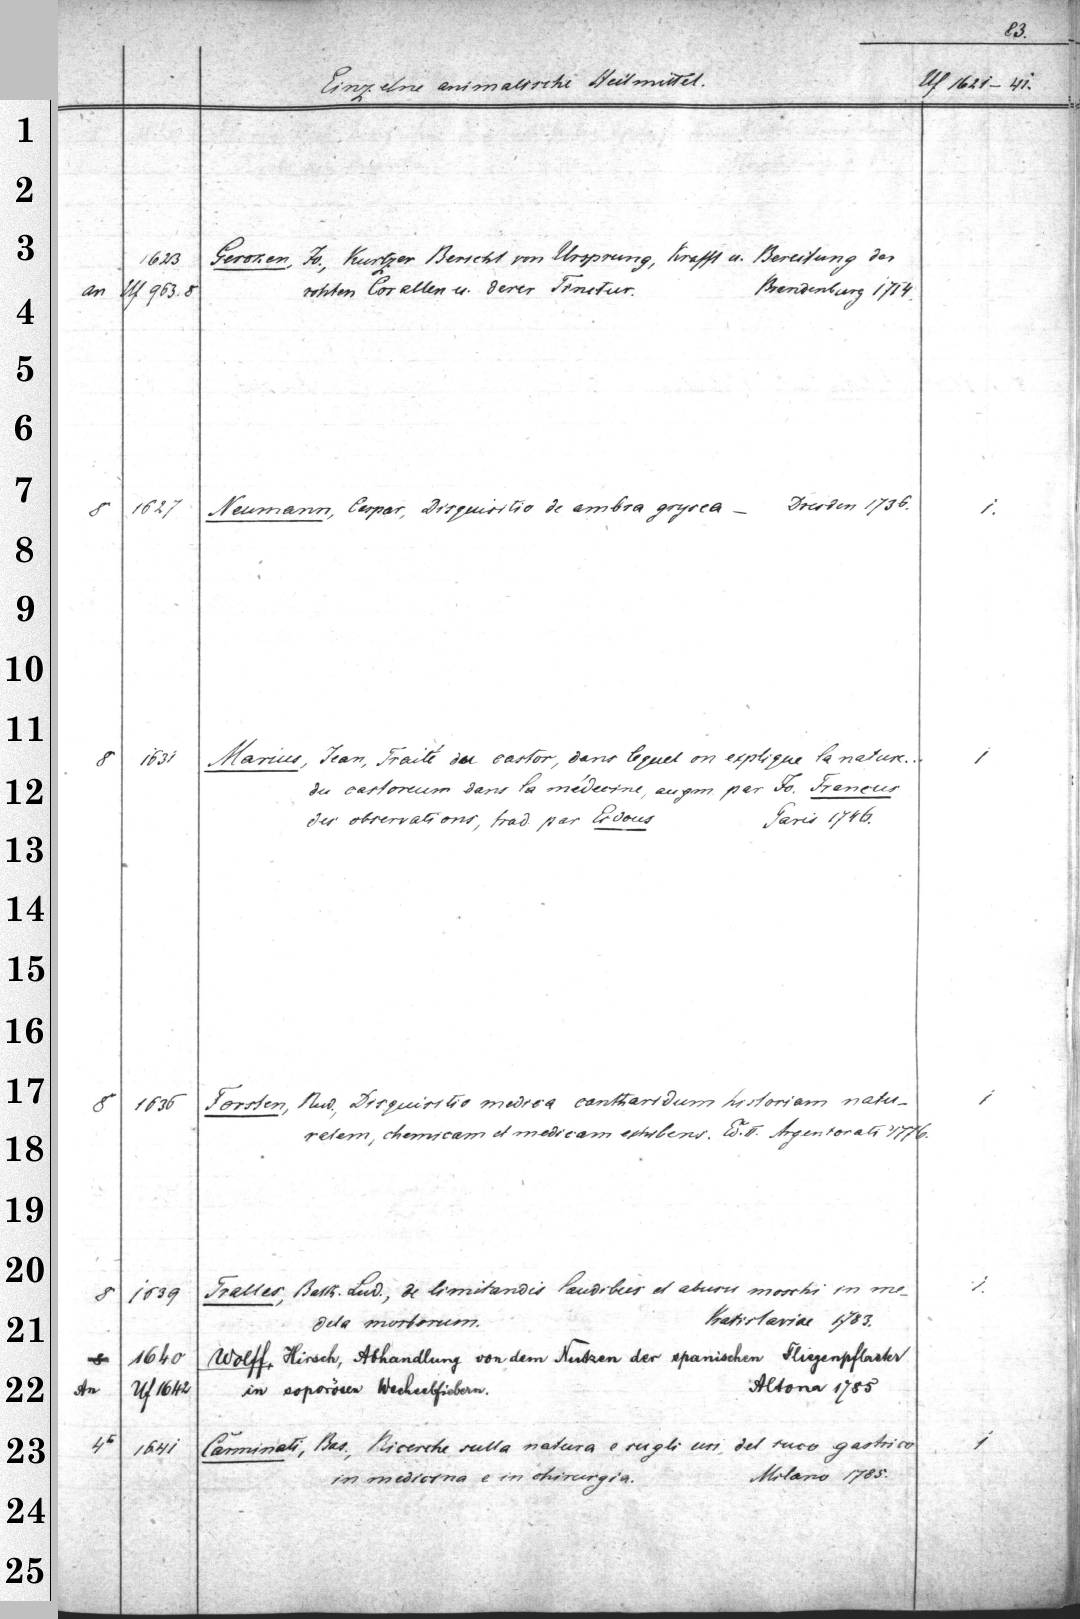 83.
Einzelne animalische Heilmittel. Uf 1621 – 41.
1
2
3
1623 Gerozen, Jo., Kurtzer Bericht von Ursprung, Krafft u. Bereitung der
an Uf 963. 8 rohten Corallen u. derer Tinctur. Brandenburg 1714.
4
5
6
7
8 1627 Neumann, Caspar, Disquisitio de ambra grysea – Dresden 1736. 1.
8
9
10
11
8 1631 Marius, Jean, Traité du castor, dans lequel on explique la nature... 1
12
du castoreum dans la médecine, augm par Jo. Francus
des observations, trad. par Eidous Paris 1746.
13
14
15
16
17
8 1636 Forsten, Rud., Disquisitio medica cantharidum historiam natu- 1
ralem, chemicam et medicam exhibens. Ed. II. Argentorati 1776.
18
19
20
8 1639 Tralles, Balth. Lud., de limitandis laudibus et abusu moschi in me- 1.
21
dela morborum. Vratislaviae 1783.
8 1640 Wolff, Hirsch, Abhandlung von dem Nutzen der spanischen Fliegenpflaster
22
An Uf 1642 in soporösen Wechselfiebern. Altona 1785
23
4° 1641 Carminati, Bas., Ricerche sulla natura e sugli usi del suco gastrico 1
in medicina e in chirurgia. Milano 1785.
24
25